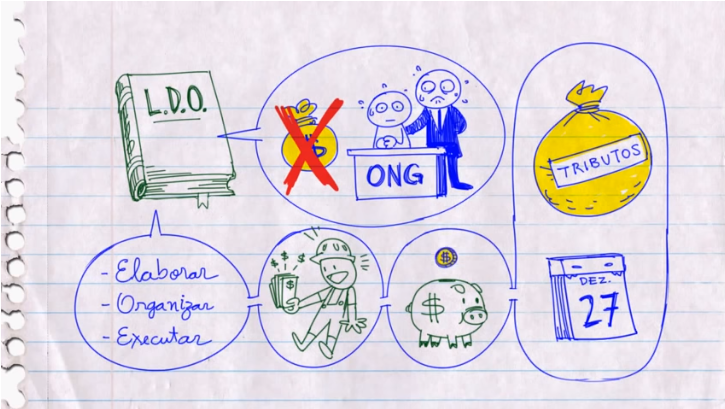 L.D.O.
$
ONG
TRIBUTOS
- Elaborar
- Organizar
- Executar
$ $ $
$
$
$
DEZ.
27